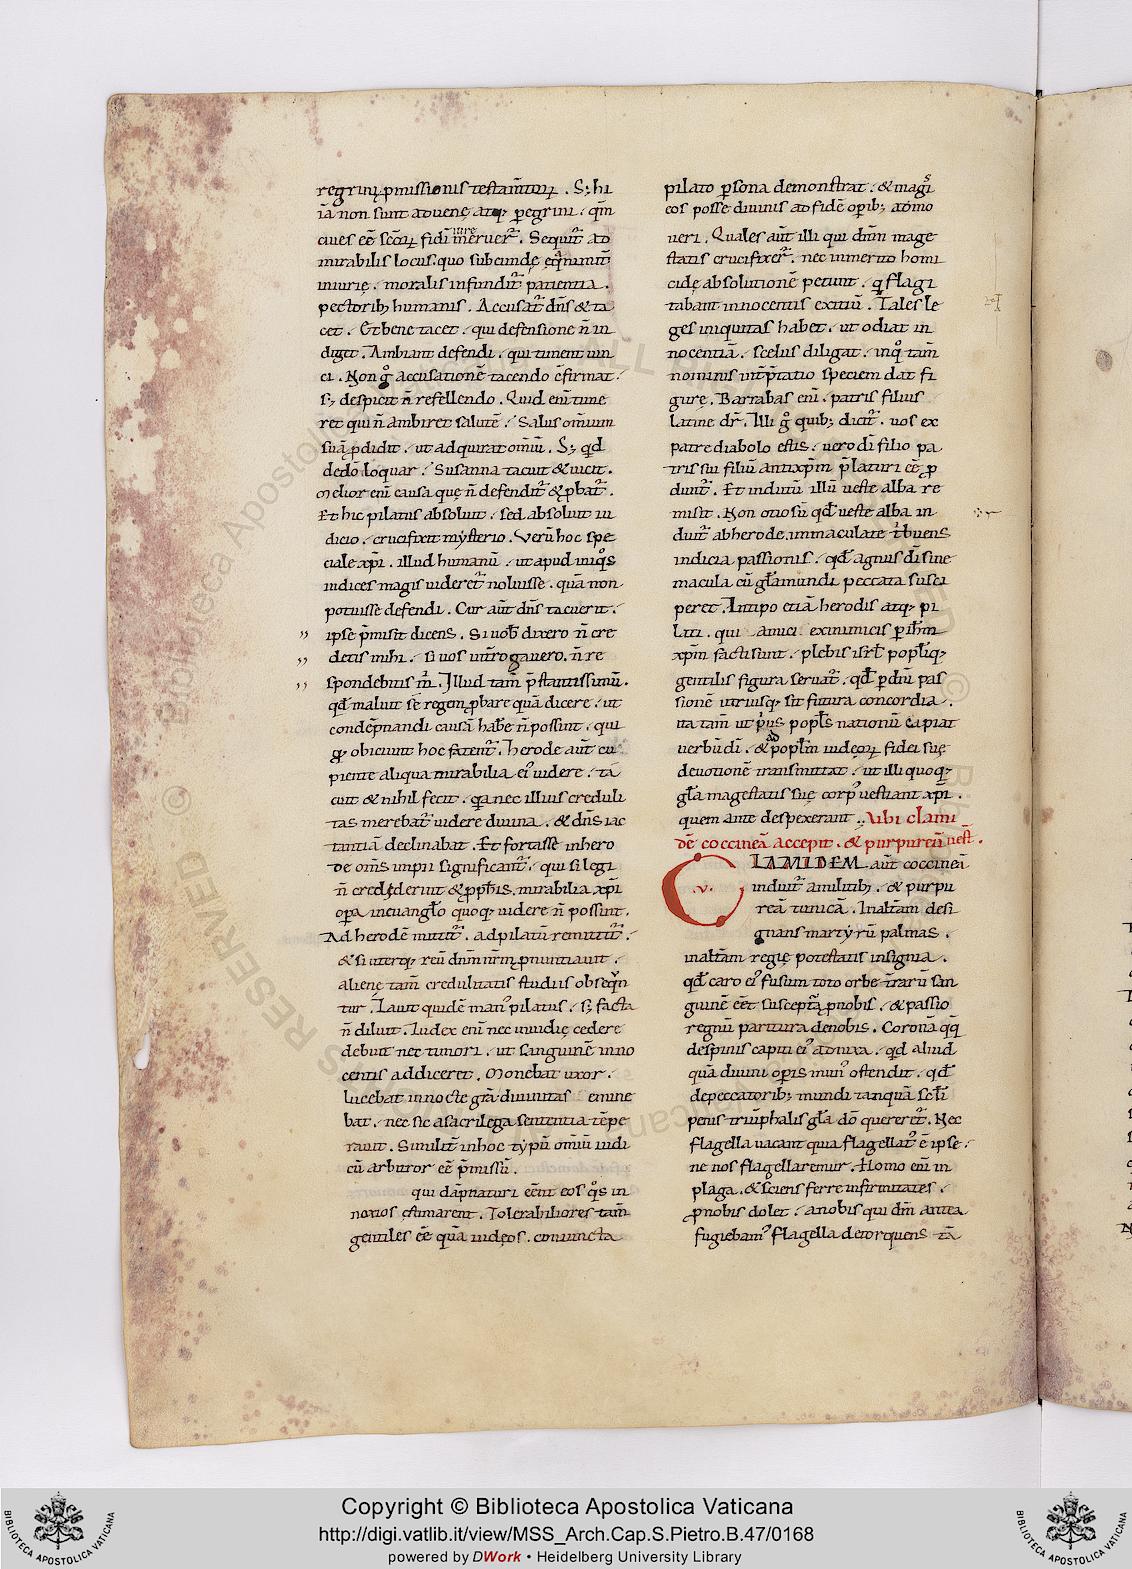 regrinꝝ ꝓmissionis testam̄toꝝ . S; hi
iā non sunt aduenę atq; ꝑegrini . qm̄
ciues eē sc̄oꝝ fidī meruer̄ . Sequit̄ ad
mirabilis locus . quo subeundę eq̇nimit̄
iniurię . moralis infundit̄ patientia .
pectorib; humanis . Accusat̄ dn̄s & ta
cet . Et bene tacet . qui defensione n̄ in
diget . Ambiant defendi . qui timent uin
ci . Non g̊ accusationē tacendo c̄firmat .
s; despicit n̄ refellendo . Quid eni᷒ time
ret qui n̄ ambiret salutē . Salus om̄ium
suā ꝑdidit . ut adquirat om̄iū . S; qd̄
dedo loquar . Susanna tacuit & uicit .
Melior eni᷒ causa quę n̄ defendit̄ & ꝓbat̄ .
Et hic pilatus absoluit . sed absoluit iu
dicio . crucifixit mẏsterio . Verū hoc spe
ciale xp̄i . illud humanū . ut apud iniq̊s
iudices magis uideret̄ noluisse . quā non
potuisse defendi . Cur aūt dn̄s tacuerit .
ipse p̄misit dicens . Si uob̄ dixero n̄ cre
detis mihi . si uos int̄rogauero . n̄ re
spondebitis m̄ . Illud tam̄ p̄stantissimū .
qd̄ maluit se regem ꝓbare quā dicere . ut
condēpnandi causā habe n̄ possint . qui
g̊ obiciunt hoc fatent̄ . herode aūt cu
piente aliqua mirabilia ei᷒ uidere . ta
cuit & nihil fecit . qa nec illius creduli
tas merebat̄ uidere diuina . & dn̄s iac
tantiā declinabat . Et fortasse in hero
de om̄s impii significant̄ . qui si legi
n̄ crediderint & ꝓph̄is . mirabilia xp̄i
oꝑa in euangl̄o quoq; uidere n̄ possint .
Ad herodē mittit̄ . ad pilatū remittit̄ .
& si uterq; reū dnm̄ nr̄m ꝓnuntiauit .
alienę tam̄ credulitatis studiis obseqn̄
tur . Lauit quidē man᷒ pilatus . s; facta
n̄ diluit . Iudex eni᷒ nec inuidię cedere
debuit nec timori . ut sanguinē inno
centis addiceret . Monebat uxor .
lucebat in nocte gr̄a diuinitas emine
bat . nec sic a sacrilega sententia tēpe
rauit . Similit̄ in hoc tẏpū om̄iū iudi
cū arbitror eē p̄missū .
qui dāpnaturi eēnt eos q̊s in
noxios ęstimarent . Tolerabiliores tam̄
gentiles eē quā iudęos . conuincta
pilato ꝑsona demonstrat . & magi᷒
eos posse diuinis ad fidē oꝑib; admo
ueri . Quales aūt illi qui dnm̄ mage
statis crucifixer̄ . nec inmerito homi
cidę absolutionē petunt . q̄ flagi
tabant innocentis exitiū . Tales le
ges iniquitas habet . ut odiat in
nocentiā . scelus diligat . in q̊ tam̄
nominis int̄p̄tatio speciem dat fi
gurę . Barrabas eni᷒ . patris filius
latine dr̄ . Illi g̊ quib; dicit̄ . uos ex
patre diabolo estis . uero dī filio pa
tris sui filiū antixp̄m p̄laturi eē ꝓ
dunt̄ . Et induntū illū ueste alba re
misit . Non otiosū qd̄ ueste alba in
duit̄ ab herode . immaculate t̄buens
indicia passionis . qd̄ agnus dī sine
macula cū gl̄a mundi peccata susci
peret . In tipo etiā herodis atq; pi
lati . qui amici ex inimicis ꝑ ih̄m
xp̄m facti sunt . plebis isrl̄ popl̄iq;
gentilis figura seruat̄ . qd̄ ꝑ dn̄i pas
sionē utriusq; sit futura concordia .
ita tam̄ ut p̄us popl̄s nationū capiat
uerbū dī . & ad popl̄m iudęoꝝ fidei suę
deuotionē transmittat . ut illi quoq;
gl̄a magestatis suę corp᷒ uestiant xp̄i .
quem ante despexerant . Vbi clami
dē coccineā accepit . & purpureū uest̄ .
CLAMIDEM aūt coccineā
.v.
induit̄ a militib; . & purpu
reā tunicā . In alt̄am desi
gnans martẏrū palmas .
in alt̄am regię potestatis insignia .
qd̄ caro ei᷒ fusum toto orbe t̄rarū san
guinē eēt susceptā ꝓ nobis . & passio
regnū paritura de nobis . Coronā q̄q̄
de spinis capiti ei᷒ adnixa . qd̄ aliud
quā diuini oꝑis mun᷒ ostendit . qd̄
de peccatorib; mundi tanquā sec̄li
penis triūphalis gl̄a dō quereret̄ . Nec
flagella uacant quia flagellat᷒ ē ipse .
ne nos flagellaremur . Homo eni᷒ in
plaga . & sciens ferre infirmitates .
ꝓ nobis dolet . a nobis qui dm̄ antea
fugiebam᷒ flagella detorquens . tā
Copyright © Biblioteca Apostolica Vaticana
http://digi.vatlib.it/view/MSS_Arch.Cap.S.Pietro.B.47/0168
powered by DWork • Heidelberg University Library
BIBLIOTECA APOSTOLICA VATICANA
BIBLIOTECA APOSTOLICA VATICANA